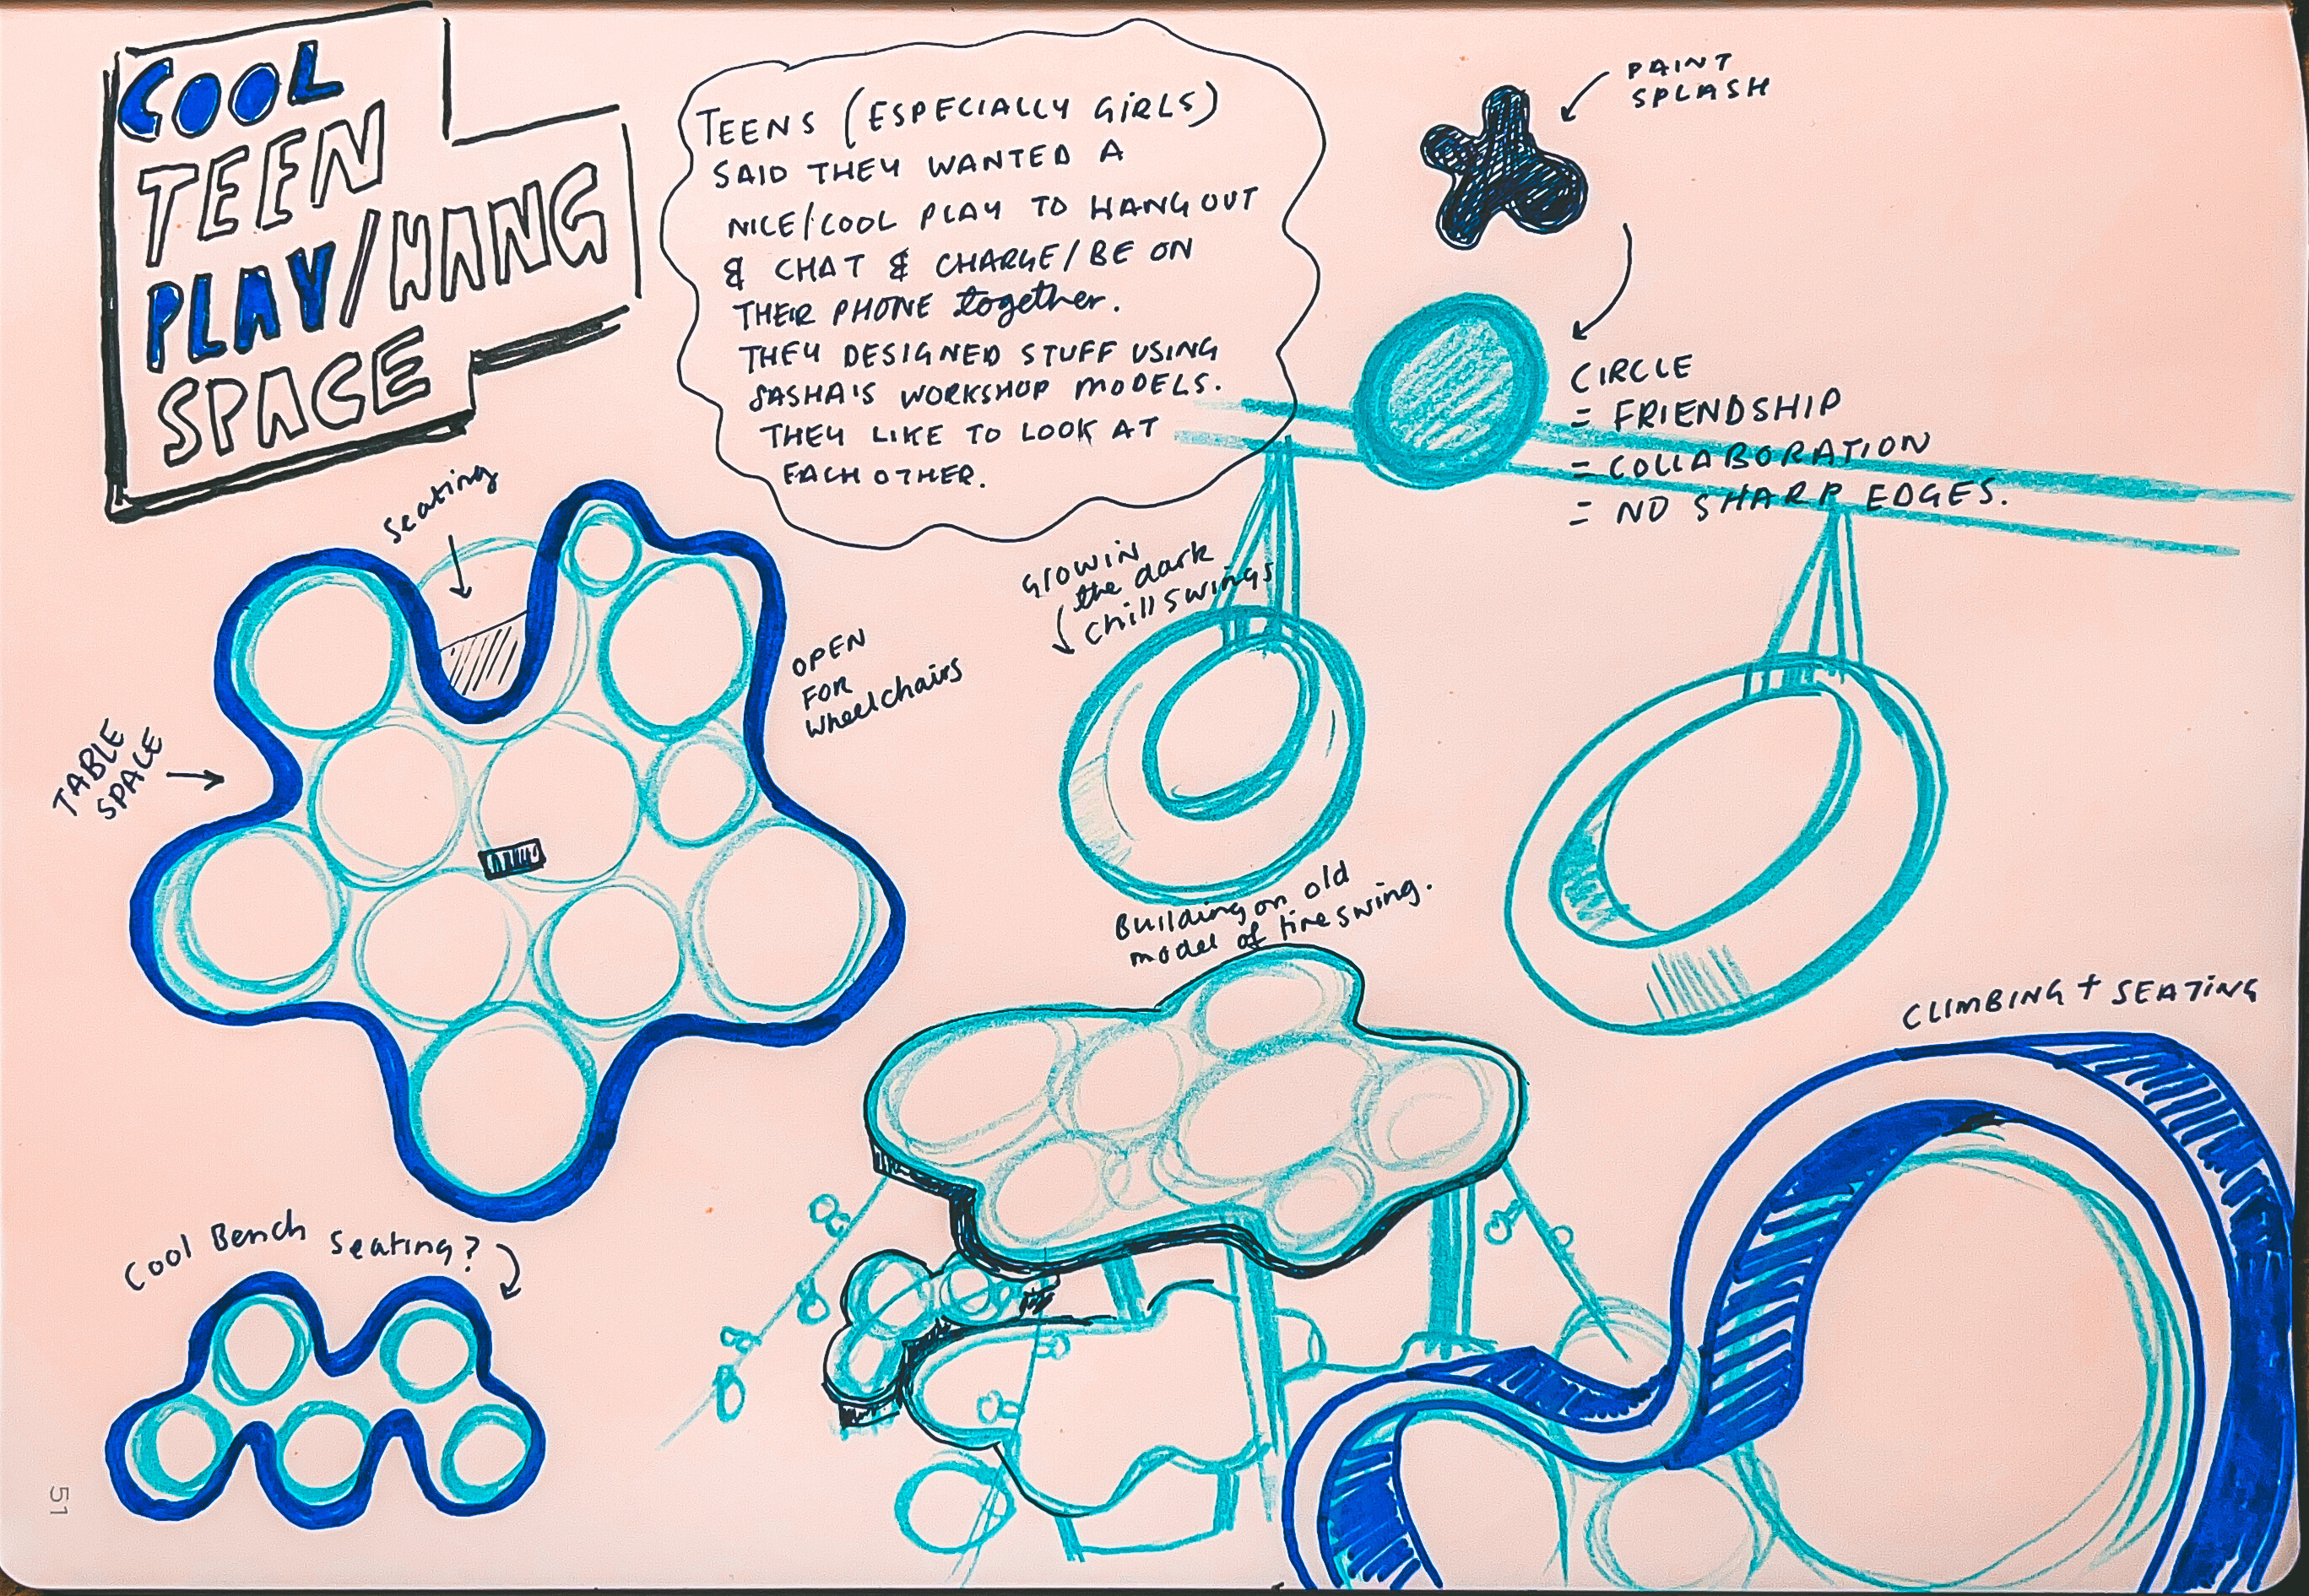 COOL
TEEN
PLAY/HANG
SPACE
TEENS (ESPECIALLY GIRLS)
SAID THEY WANTED A
NICE/COOL PLAY TO HANG OUT
& CHAT & CHARGE/BE ON
THEIR PHONE together.
THEY DESIGNED STUFF USING
SASHA'S WORKSHOP MODELS.
THEY LIKE TO LOOK AT
EACH OTHER.
PAINT
SPLASH
CIRCLE
= FRIENDSHIP
= COLLABORATION
= NO SHARP EDGES.
seating
TABLE
SPACE
OPEN
FOR
wheelchairs
GLOW IN
the dark
chill swings
Building on old
model of tire swing.
CLIMBING + SEATING
Cool Bench seating?
51